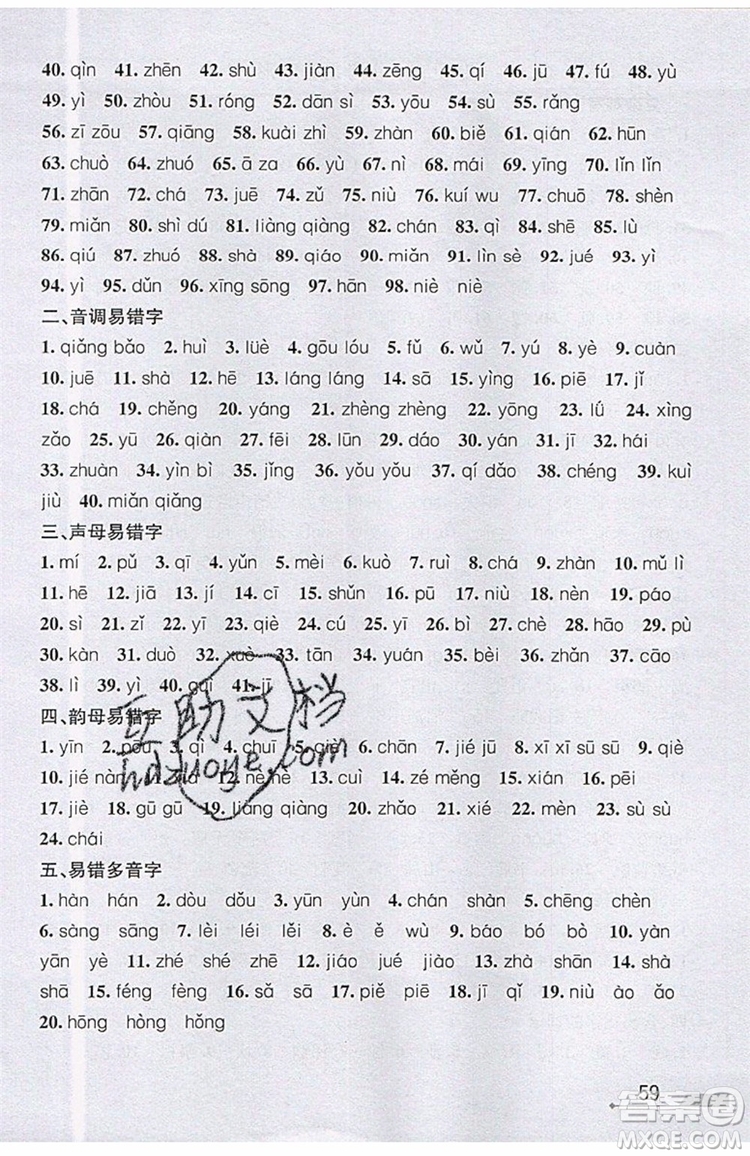 40. qìn 41. zhēn 42. shù 43. jiàn 44. zēng 45. qí 46. jū 47. fú 48. yù
49. yì 50. zhòu 51. róng 52. dān sì 53. yōu 54. sù 55. rǎng
56. zī zōu 57. qiāng 58. kuài zhì 59. zhàn 60. biě 61. qián 62. hūn
63. chuò 64. zhuó 65. ā za 66. yù 67. nì 68. mái 69. yīng 70. lǐn lǐn
71. zhān 72. chá 73. juē 74. zǔ 75. niù 76. kuí wu 77. chuō 78. shèn
79. miǎn 80. shì dú 81. liàng qiàng 82. chán 83. qì 84. shē 85. lù
86. qiú 87. zhuó 88. shà 89. qiáo 90. miǎn 91. lìn sè 92. jué 93. yì
94. yì 95. dǔn 96. xīng sōng 97. hān 98. niè niè
二、音调易错字
1. qiǎng bǎo 2. huì 3. lüè 4. gōu lóu 5. fǔ 6. wǔ 7. yú 8. yè 9. cuàn
10. juē 11. shà 12. hē 13. láng láng 14. sā 15. yìng 16. piē 17. jǐ
18. chá 19. chěng 20. yáng 21. zhèng zhèng 22. yōng 23. lǘ 24. xìng
zǎo 25. yū 26. qiàn 27. fēi 28. lūn 29. dáo 30. yán 31. jī 32. hái
33. zhuàn 34. yìn bì 35. jǐng 36. yǒu yǒu 37. qí 38. chéng 39. kuì
jiù 40. miǎn qiǎng
三、声母易错字
1. mí 2. pǔ 3. qì 4. yǔn 5. mèi 6. kuò 7. ruì 8. chá 9. zhàn 10. mǔ lì
11. hē 12. jiā 13. jí 14. cì 15. shǔn 16. pū 17. niù 18. nèn 19. páo
20. sì 21. zǐ 22. yì 23. qiè 24. cú 25. yì 26. bì 27. chè 28. niǎo 29. pù
30. kàn 31. duò 32. xiá 33. tān 34. yuán 35. bèi 36. zhǎn 37. cāo
38. lì 39. yì 40. gāi 41. jī
四、韵母易错字
1. yīn 2. póu 3. qì 4. chuī 5. qiè 6. chān 7. jié jū 8. xī xī sū sū 9. qiè
10. jié nàn 11. zào 12. hè hè 13. cuì 14. zé měng 15. xián 16. pēi
17. jiè 18. gū gū 19. liàng qiàng 20. zhǎo 21. xié 22. mèn 23. sù sù
24. chái
五、易错多音字
1. hàn hán 2. dòu dǒu 3. yūn yùn 4. chán shàn 5. chēng chèn
6. sàng sāng 7. lèi léi lěi 8. è ě wù 9. báo bó bò 10. yàn
yān yè 11. zhé shé zhē 12. jiáo jué jiào 13. dàn tán 14. shà
shā 15. féng fèng 16. sǎ sā 17. piě piē 18. jī qǐ 19. niù ào ǎo
20. hōng hòng hǒng
互助文档
hdzuoye.com
59
答案圈
MXQE.COM